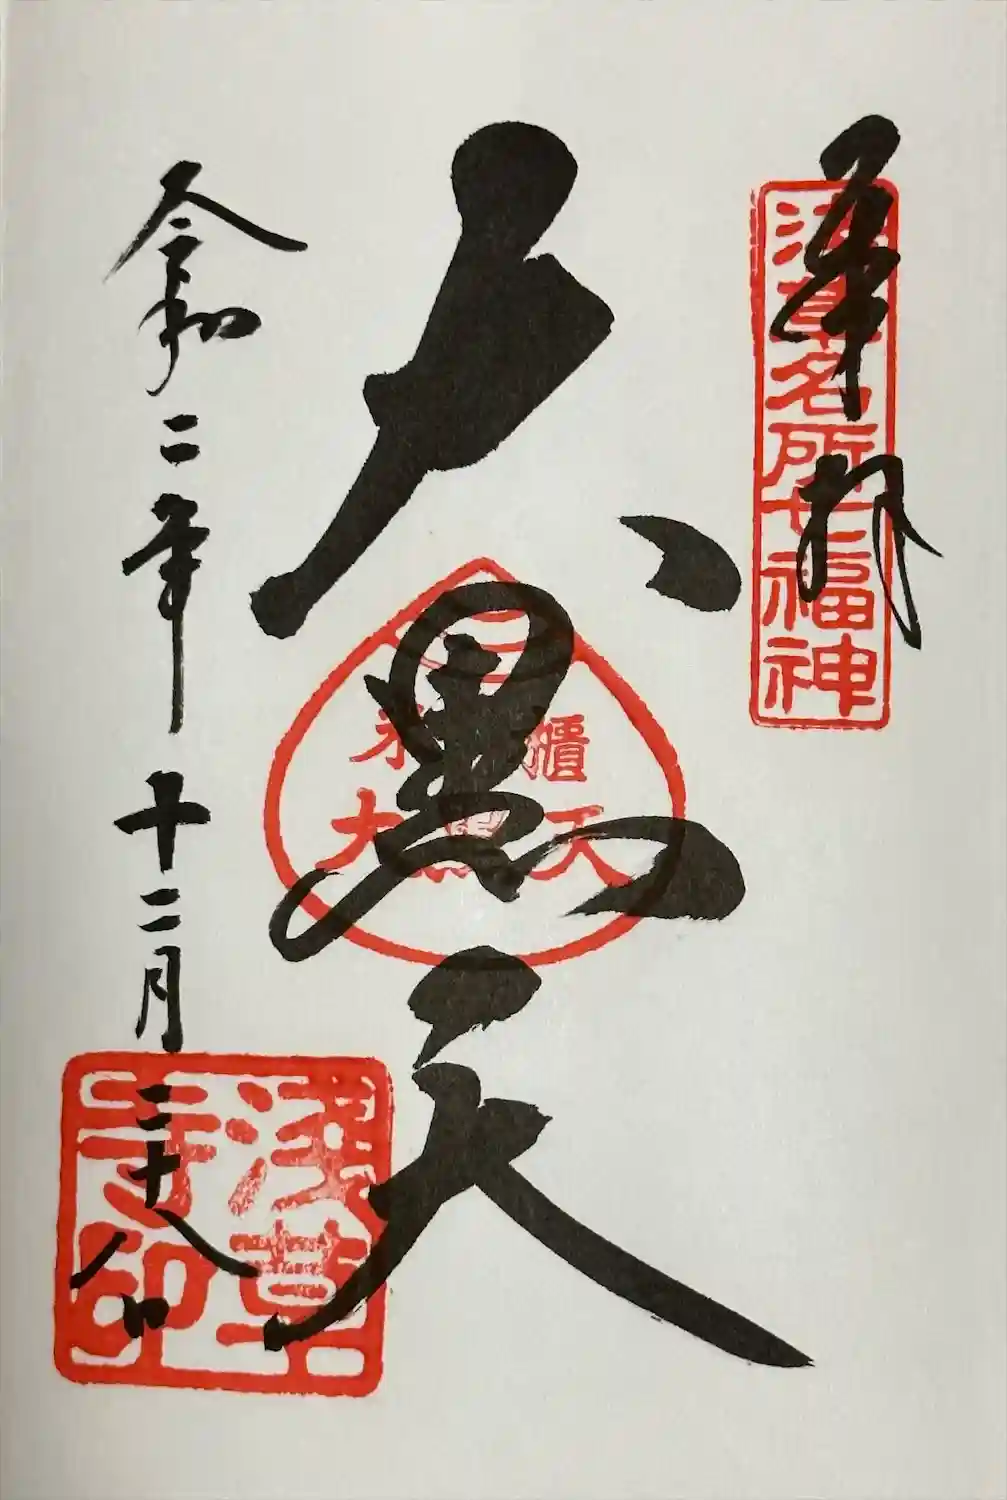 奉拝
浅草名所七福神
大黒天
米櫃
大黒天
令和二年十二月二十八日
浅草
寺印